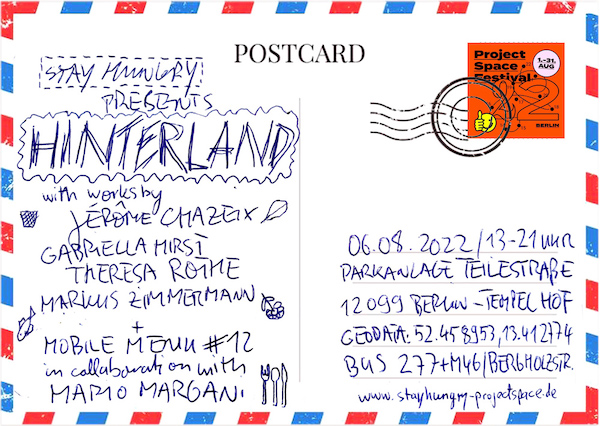 POSTCARD
STAY HUNGRY
PRESENTS
HINTERLAND
with works by
JÉRÔME CHAZEIX
GABRIELLA HIRST
THERESA ROTHE
MARKUS ZIMMERMANN
+
MOBILE MENU #12
in collaboration with
MARIO MARGANI
Project
Space
Festival
1.-31.
AUG
22
BERLIN
06.08.2022/13-21 UHR
PARKANLAGE TEILESTRAßE
12099 BERLIN-TEMPELHOF
GEODATA: 52.458953, 13.412174
BUS 277+M46/BERGHOLZSTR.
www.stayhungry-projectspace.de